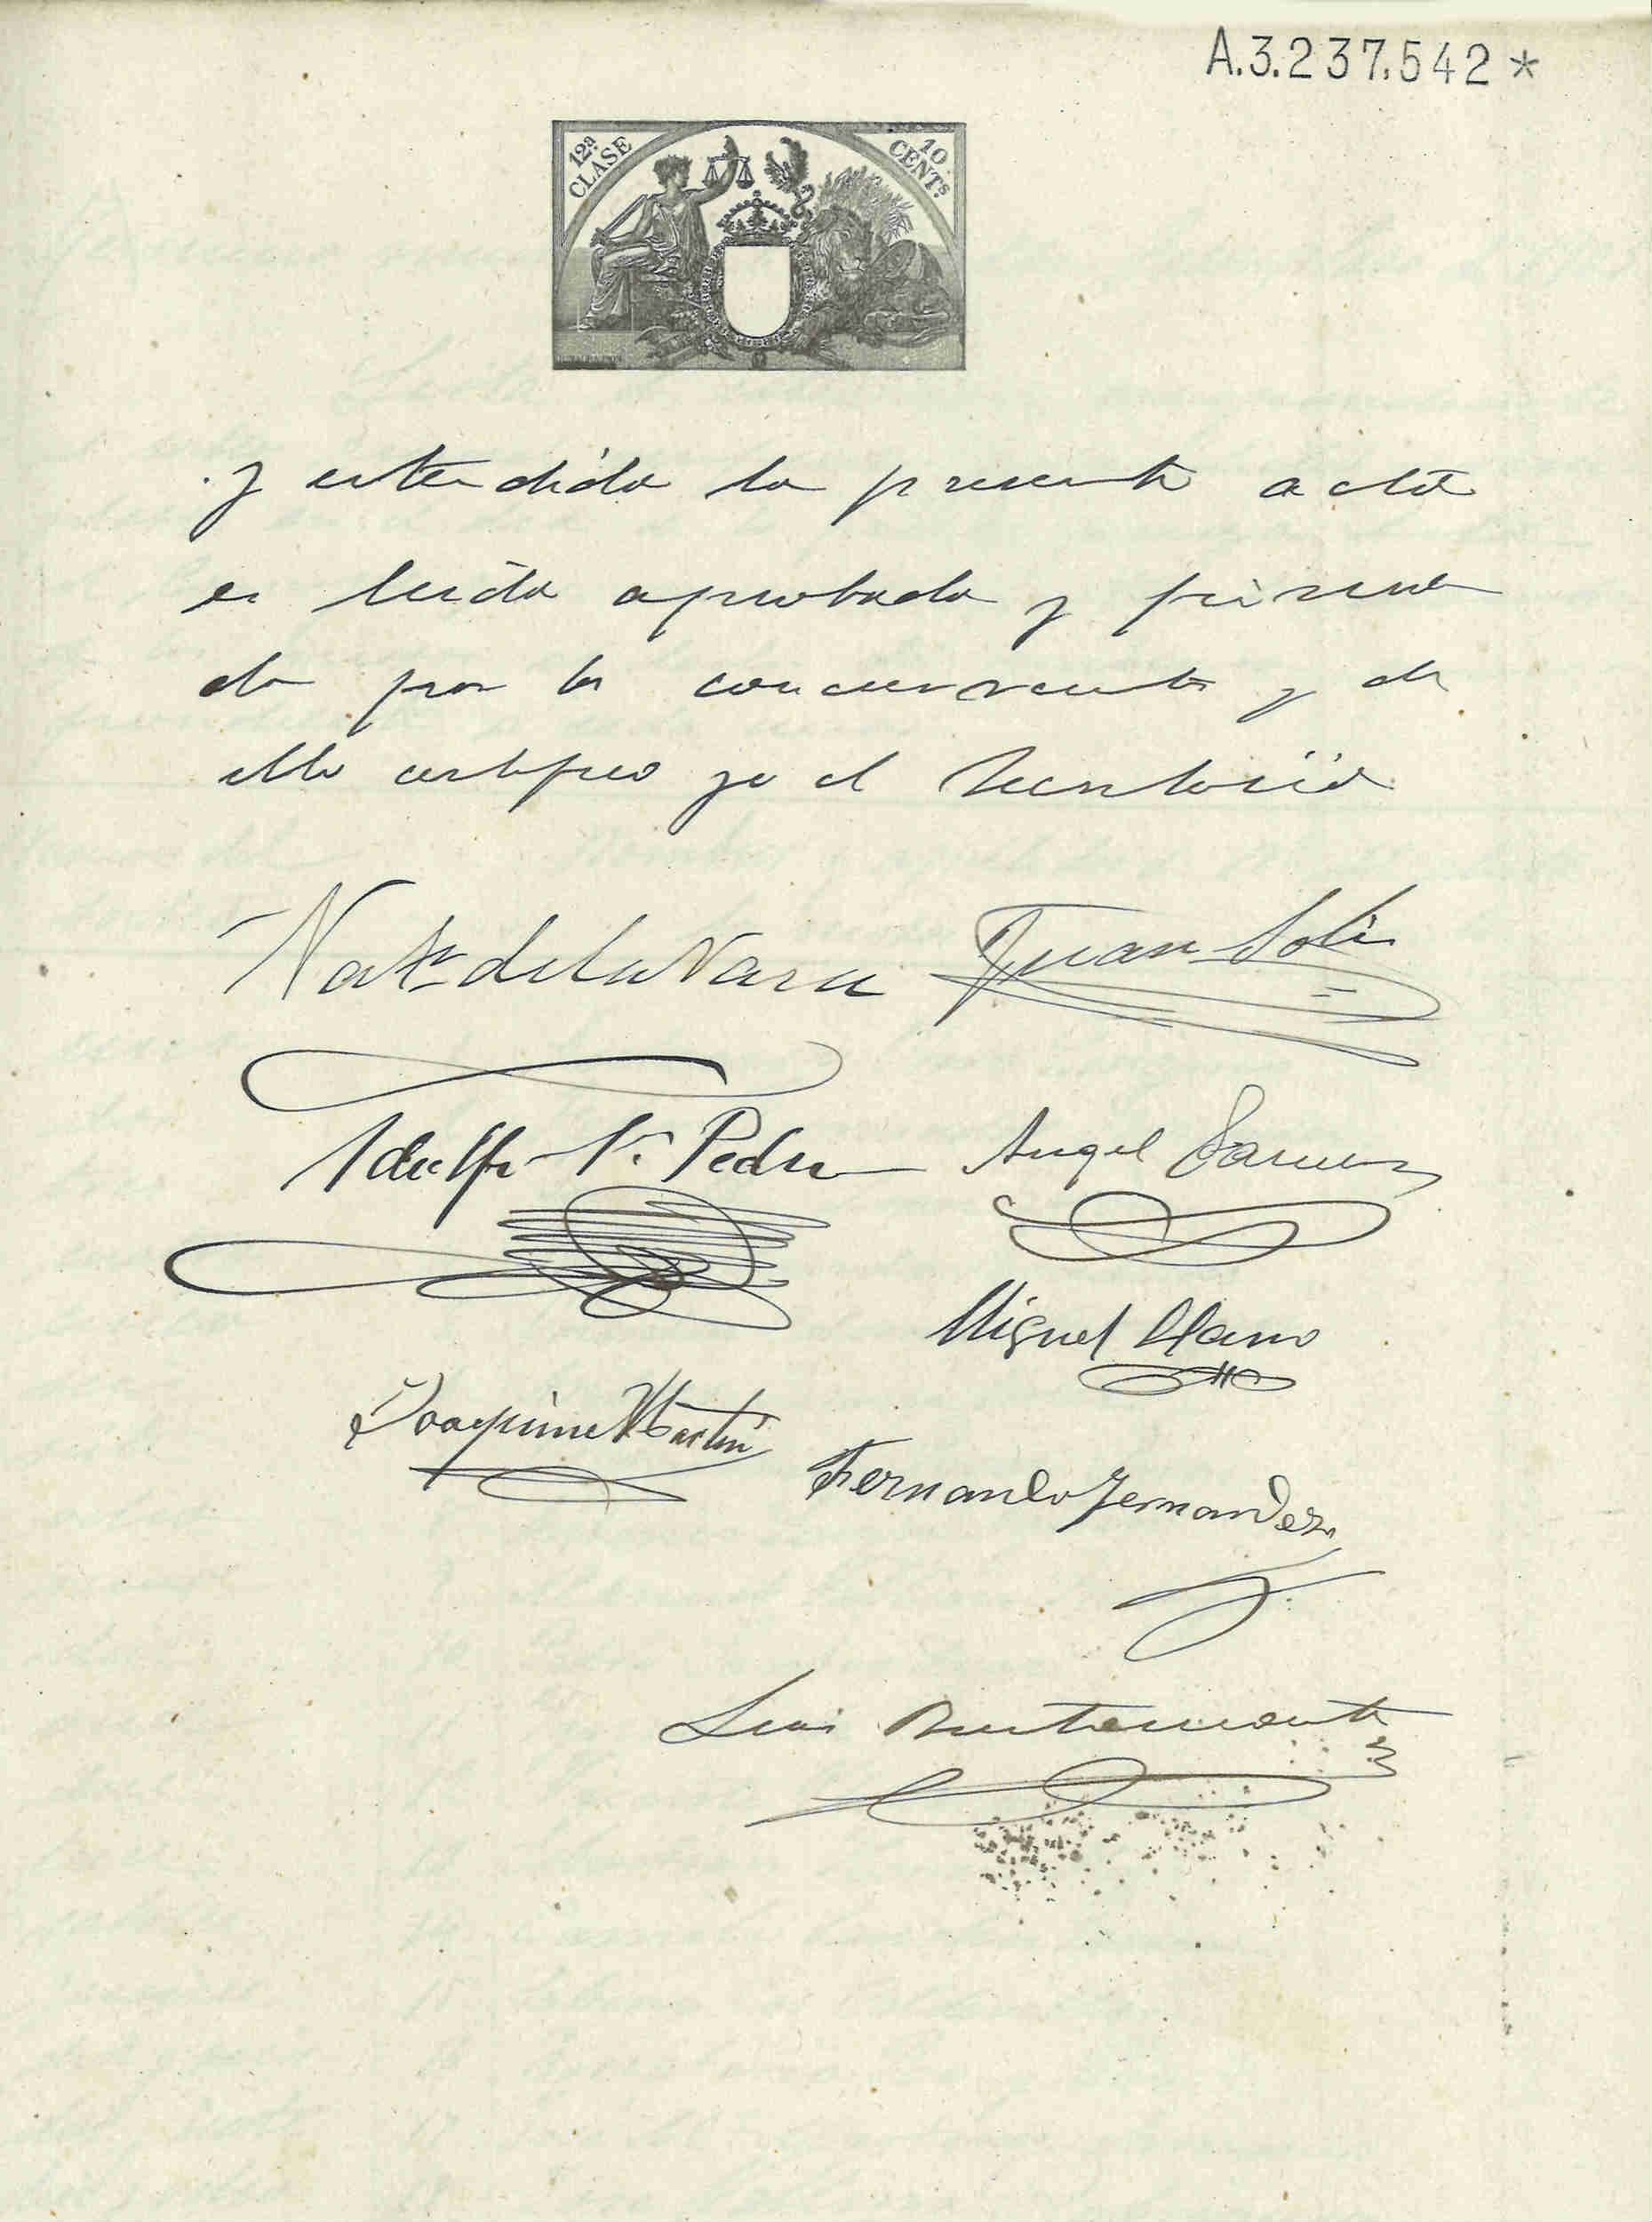 A.3.237.542*
12ª CLASE
10 CENTs
y estendida la presente acta
es leida aprobada y firma
da por los concurrentes y de
ello certifico yo el Secretario
Nat. de la Vara Juan Solis
Adolfo V. Pedro Angel
Miguel Llano
Joaquin Martin
Fernando Fernandez
Luis Bustamante